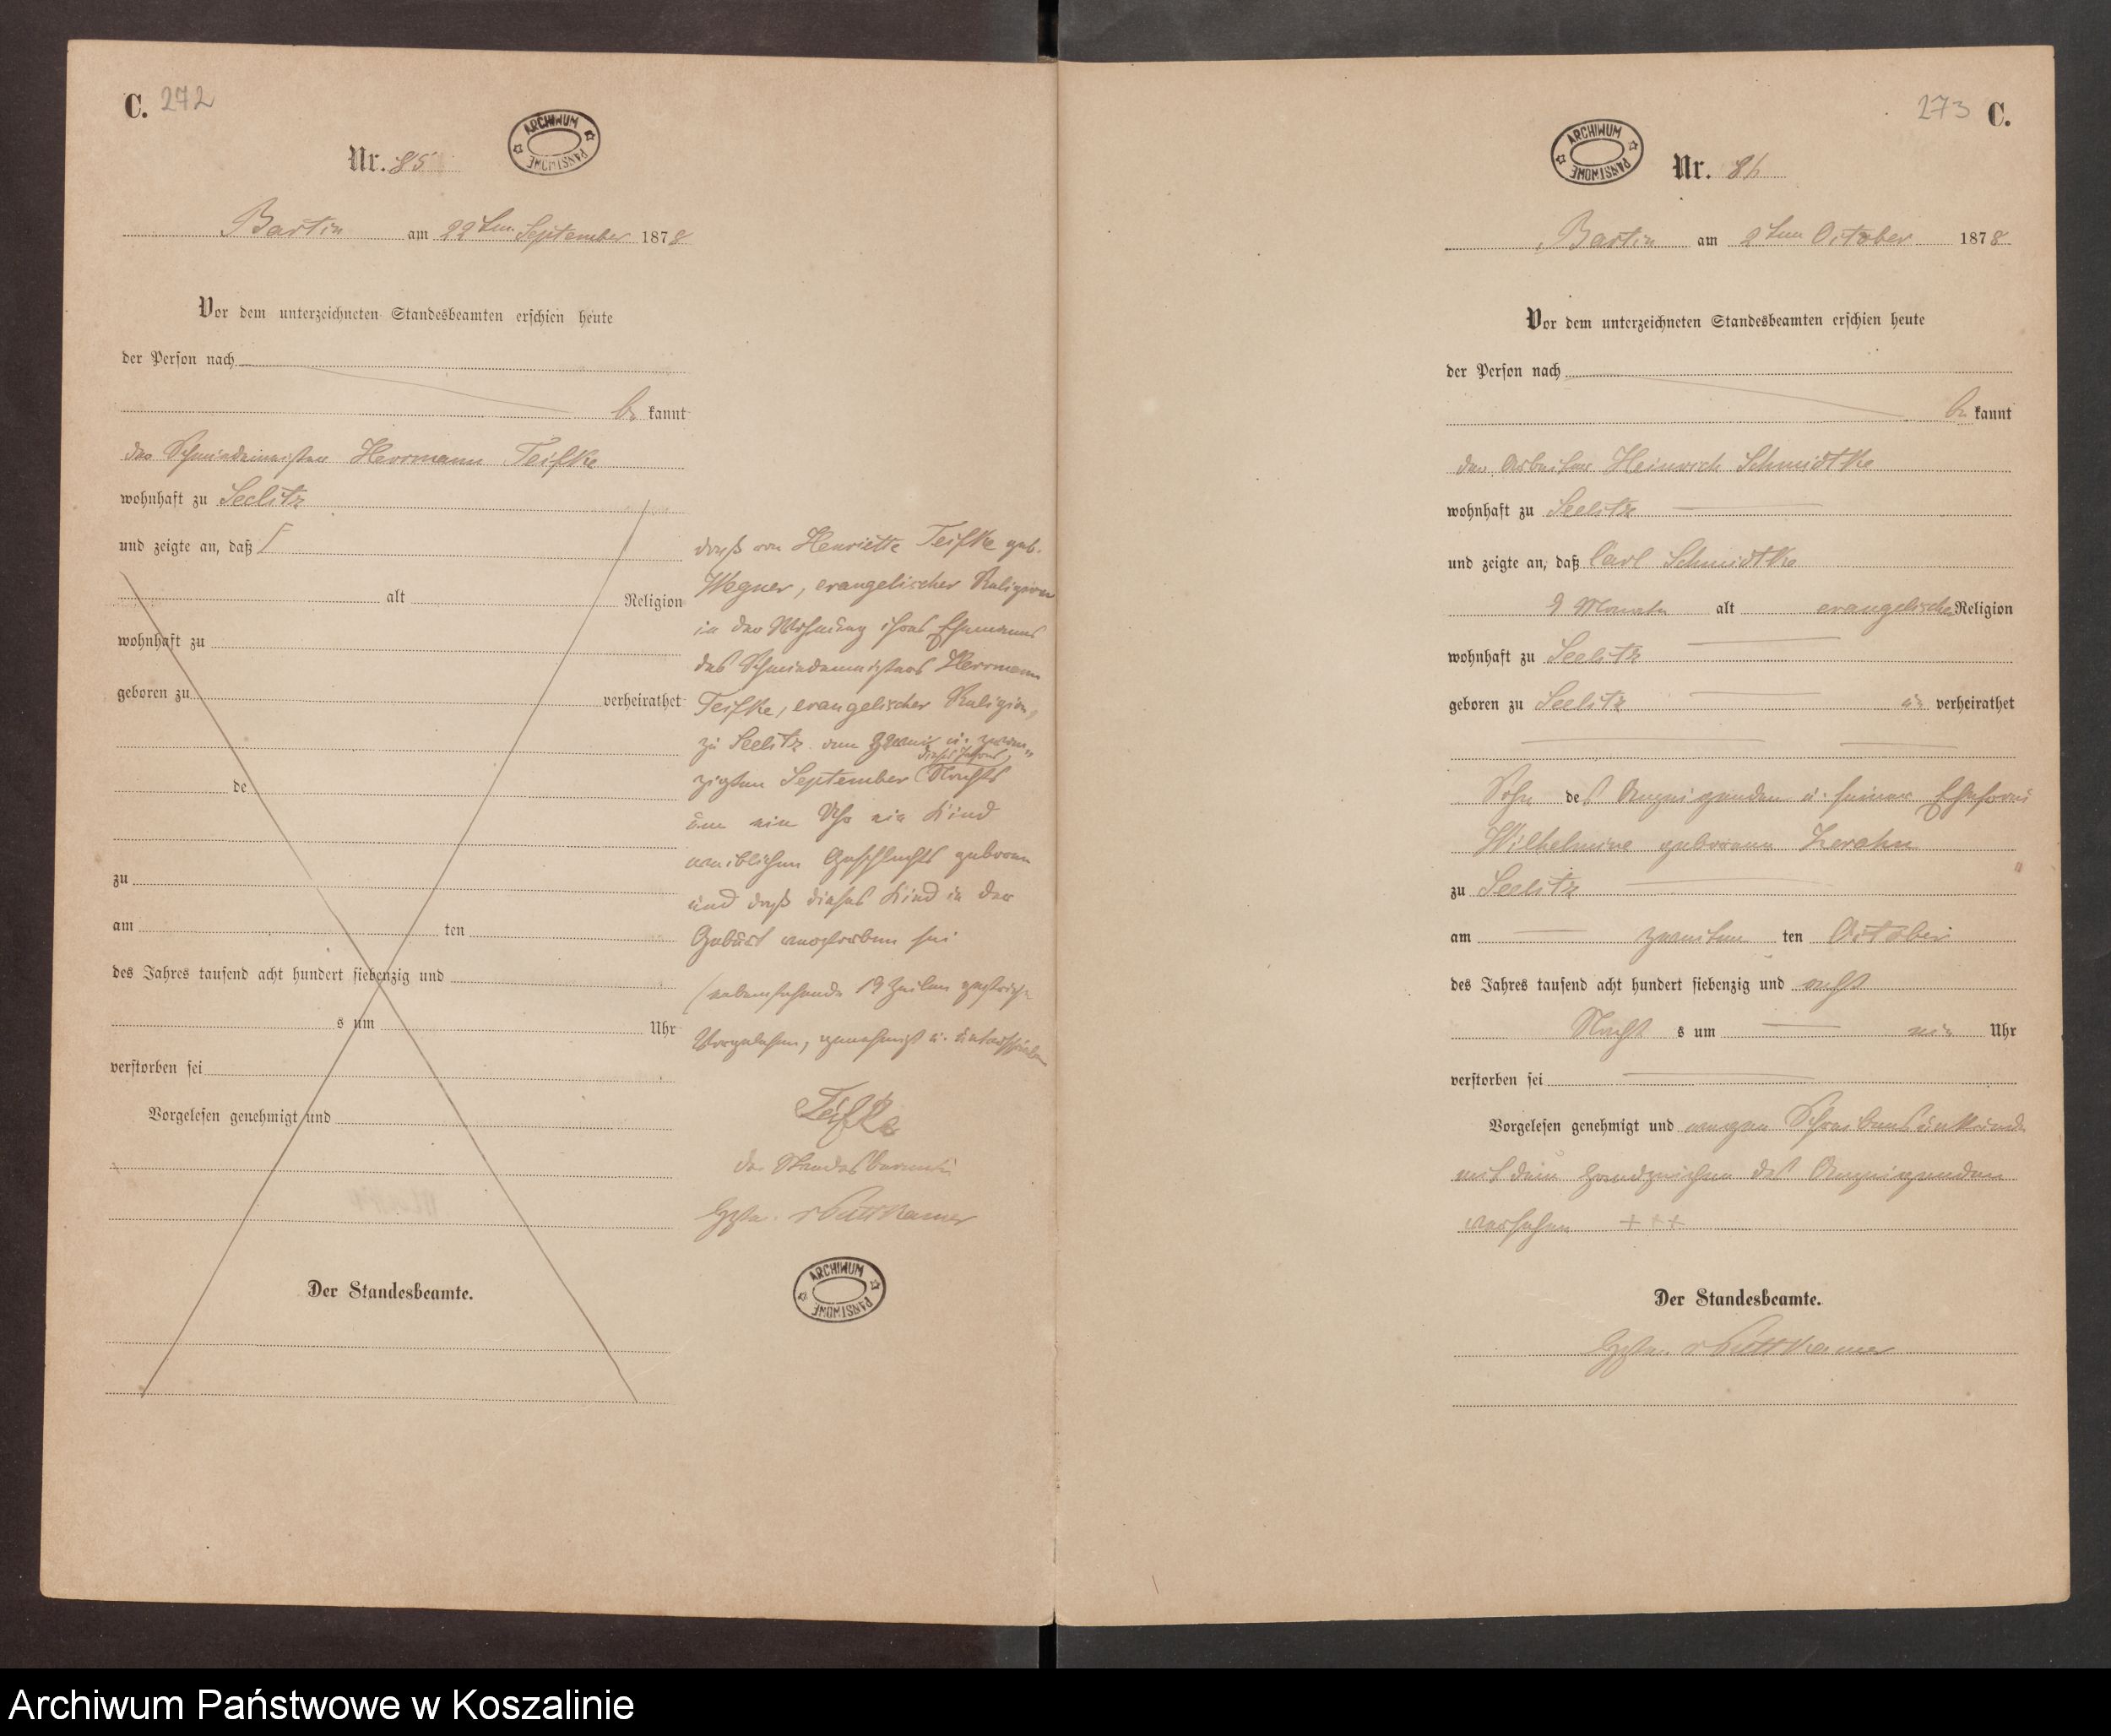 C. 272
ARCHIWUM PAŃSTWOWE
Nr. 85
Bartin am 22ten September 1878
Vor dem unterzeichneten Standesbeamten erschien heute
der Person nach
be kannt
der Schmiedemeister Herrmann Teifke
wohnhaft zu Seelitz
und zeigte an, daß
alt Religion
wohnhaft zu
geboren zu verheirathet
de
zu
am ten
des Jahres tausend acht hundert siebenzig und
s um Uhr
verstorben sei
Vorgelesen genehmigt und
Der Standesbeamte.
daß von Henriette Teifke geb.
Wegner, evangelischer Religion
in der Wohnung ihres Ehemanns
des Schmiedemeisters Herrmann
Teifke, evangelischer Religion,
zu Seelitz am zwei u. zwan„
dieses Jahres,
zigsten September Nachts
um ein Uhr ein Kind
weiblichen Geschlechts geboren
und daß dieses Kind in der
Geburt verstorben sei
(nebenstehende 19 Zeilen gestrich.
Vorgelesen, genehmigt u. unterschrieben
Teifke
der Standesbeamte
v Puttkamer
ARCHIWUM PAŃSTWOWE
273 C.
ARCHIWUM PAŃSTWOWE
Nr. 86
Bartin am 2ten October 1878
Vor dem unterzeichneten Standesbeamten erschien heute
der Person nach
be kannt
der Arbeiter Heinrich Schmidtke
wohnhaft zu Seelitz
und zeigte an, daß Carl Schmidtke
9 Monate alt evangelischer Religion
wohnhaft zu Seelitz
geboren zu Seelitz un verheirathet
Sohn des Anzeigenden u. seiner Ehefrau
Wilhelmine geborene
zu Seelitz
am zweiten ten October
des Jahres tausend acht hundert siebenzig und acht
Nacht s um ein Uhr
verstorben sei
Vorgelesen genehmigt und wegen Schreibensunkunde
mit dem Handzeichen des Anzeigenden
versehen +++
Der Standesbeamte.
v Puttkamer
Archiwum Państwowe w Koszalinie